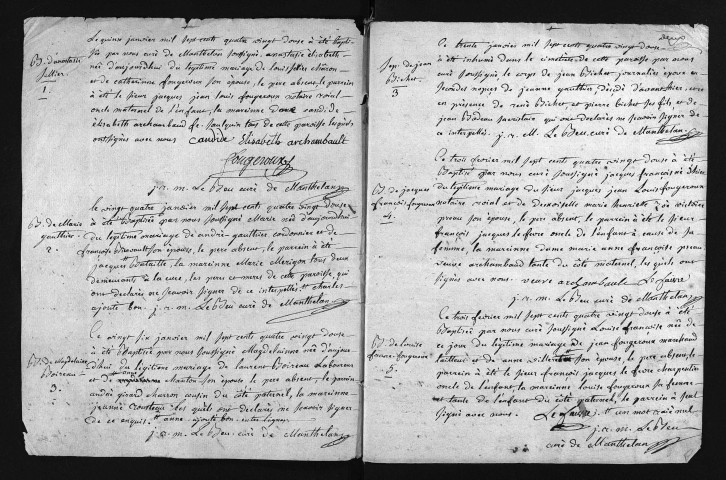 Le quinze janvier mil sept cents quatre vingt douse à été bapti-
sée par nous curé de Manthelan soussigné, anastasie élisabeth
née d'aujourdhui du légitime mariage de louis
et de catherine fougeroux son épouse, le pere absent, le parrain
à été le sieur jacques jean louis fougeroux notaire roial
oncle maternel de l'enfant, la marainne
élisabeth archambault tous de cette paroisse lesquels
ont signés avec nous. Elisabeth archambault
fougeroux
j. r. m. Lebleu curé de Manthelan
B. de Marie
gauthier
2.
le vingt quatre janvier mil sept cents quatre vingt douse
à été Baptisée par nous soussigné Marie née d'aujourdhui
du légitime mariage de andré gauthier, cordonnier et de
françoise son épouse, le pere absent, le parrain à été
jacques bataille, la marainne Marie Merigon tous deux
demeurants à la cure, les peres et meres de cette paroisse, qui
ont déclarés ne sçavoir signer de ce interpellés. charles
ajouté bon. j. r. m. Lebleu curé de Manthelan
B. de Magdelaine
Boireau
3.
Le vingt six janvier mil sept cents quatre vingt douse
à été Baptisée par nous soussigné Magdelainne née d'aujour
d'hui du légitime mariage de laurent Boireau laboureur
et de Manton son épouse le pere absent, le parrain
andré girard charon cousin du coté paternel, la marainne
jeanne lesquels ont déclarés ne sçavoir signer
de ce enquis. anne ajouté bon entre lignes.
j. r. m. Lebleu curé de Manthelan
Sep. de jean
Bichet
3
Le trente janvier mil sept cents quatre vingt douse
à été inhumé dans le cimetiere de cette paroisse par nous
curé soussigné, le corps de jean Bichet journalier époux en
secondes noces de jeanne gauthier, décédé d'avant hier, et ce
en présence de rené Bichet et pierre bichet ses fils et de
jean Bodeau sacristain qui ont déclarés ne sçavoir signer de
ce interpellés. j. r. M. Lebleu curé de Manthelan
B. de jacques
françois fougeroux
4.
Ce trois fevrier mil sept cents quatre vingt douse à été
Baptisé par nous curé soussigné jacques françois né d'hier
du légitime mariage du sieur jacques jean Louis fougeroux
notaire roial et de demoiselle marie henriette victoire
preau son épouse, le pere absent, le parrain à été le sieur
françois jacques le fevre oncle de l'enfant à cause de sa
femme, la marainne dame marie anne françoise preau
veuve archambault tante du coté maternel, les quels ont
signés avec nous. veuve archambault Lefaivre
j. r. m. Lebleu curé de Manthelan
B. de louise
5.
Ce trois fevrier mil sept cents quatre vingt douse à été
Baptisée par nous curé soussigné Louise françoise née de
ce jour du légitime mariage de jean fougeroux marchand
et de anne son épouse, le pere absent, le
parrain à été le sieur françois jacques le fevre charpentier
oncle de l'enfant, la marainne louise fougeroux sa femme
et tante de l'enfant du coté paternel, le parrain à seul
signé avec nous. Lefaivre un mot raié nul
j. r. m. Lebleu
curé de Manthelan